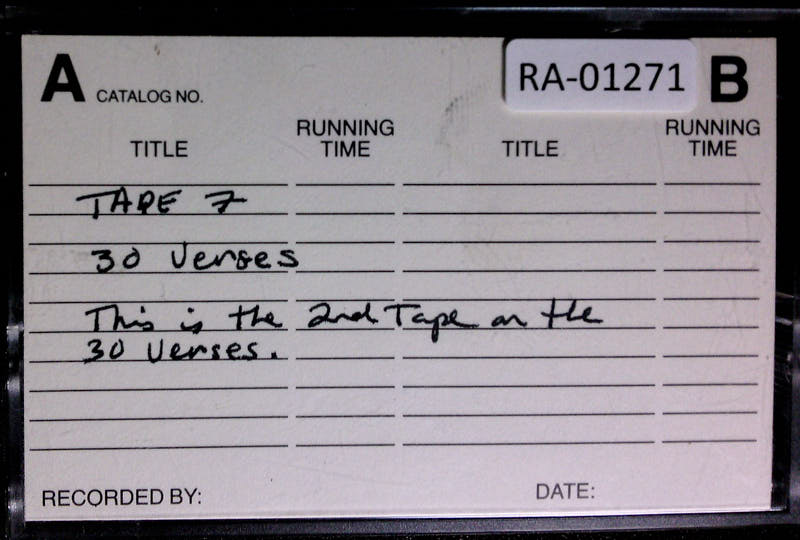 A CATALOG NO. RA-01271 B
TITLE RUNNING TIME TITLE RUNNING TIME
TAPE 7
30 Verses
This is the 2nd Tape on the
30 Verses.
RECORDED BY: DATE: